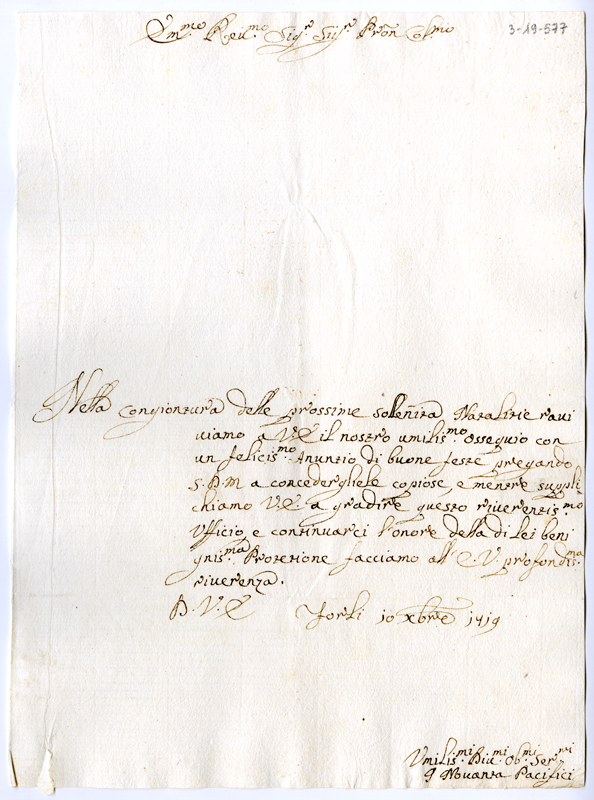 Em.mo Reu.mo Sig.r Sig.r Pron Col.mo
3-19-577
Nella congiontura delle prossime solennità Natalitie raui
uiamo a V.E. il nostro umilis.mo Ossequio con
un felicis.mo Anuntio di buone feste pregando
S.D.M a concedergliele copiose, e mentre suppli
chiamo V.E. a gradire questo riuerentis.mo
Ufficio, e continuarci l'onore della di Lei beni
gnis.ma Protetione facciamo all'E.V. profondis.ma
riuerenza.
D. V. E. Forlì 10 xbre 1719
Vmilis.mi Diu.mi Ob.mi Ser.ri
I Nouanta Pacifici